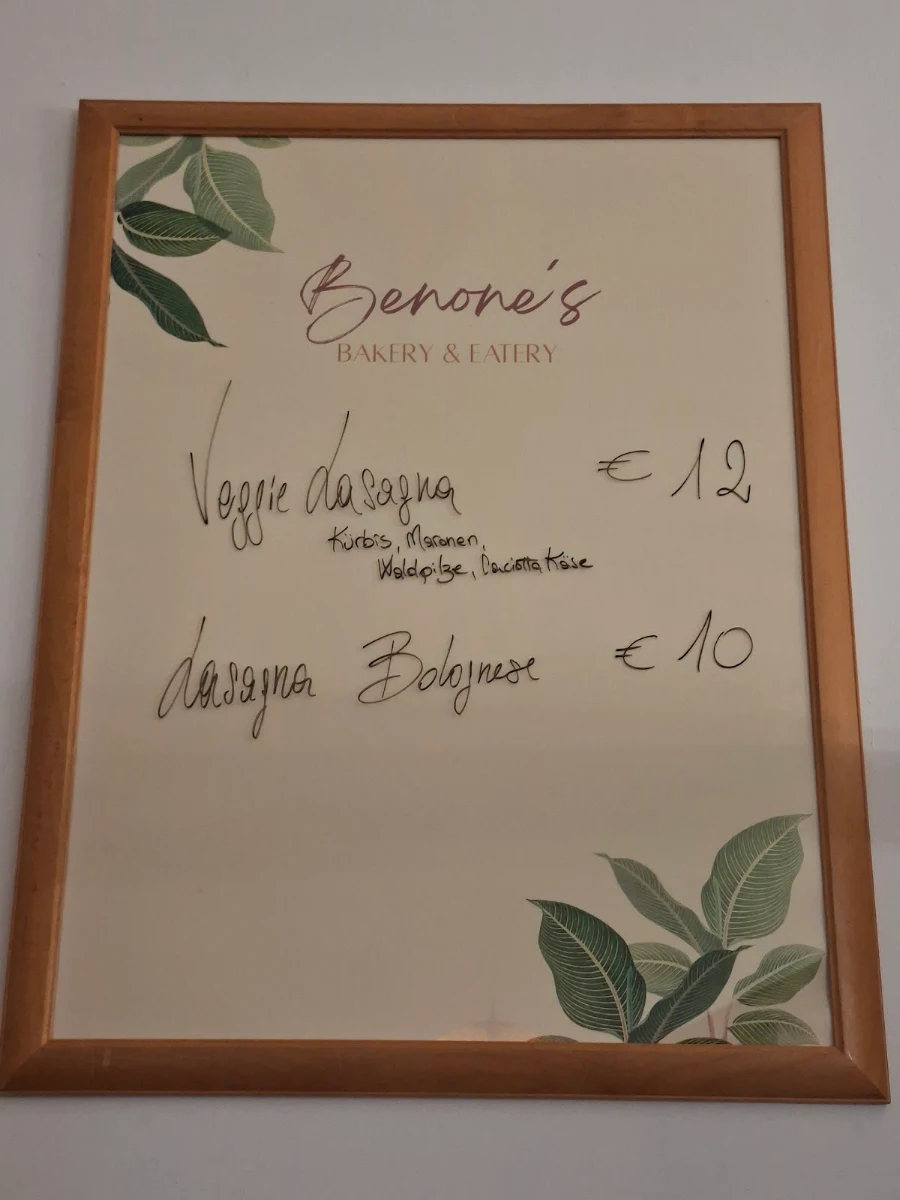 Benoné's
BAKERY & EATERY
Veggie Lasagna € 12
Kürbis, Maronen,
Waldpilze, Caciotta Käse
Lasagna Bolognese € 10